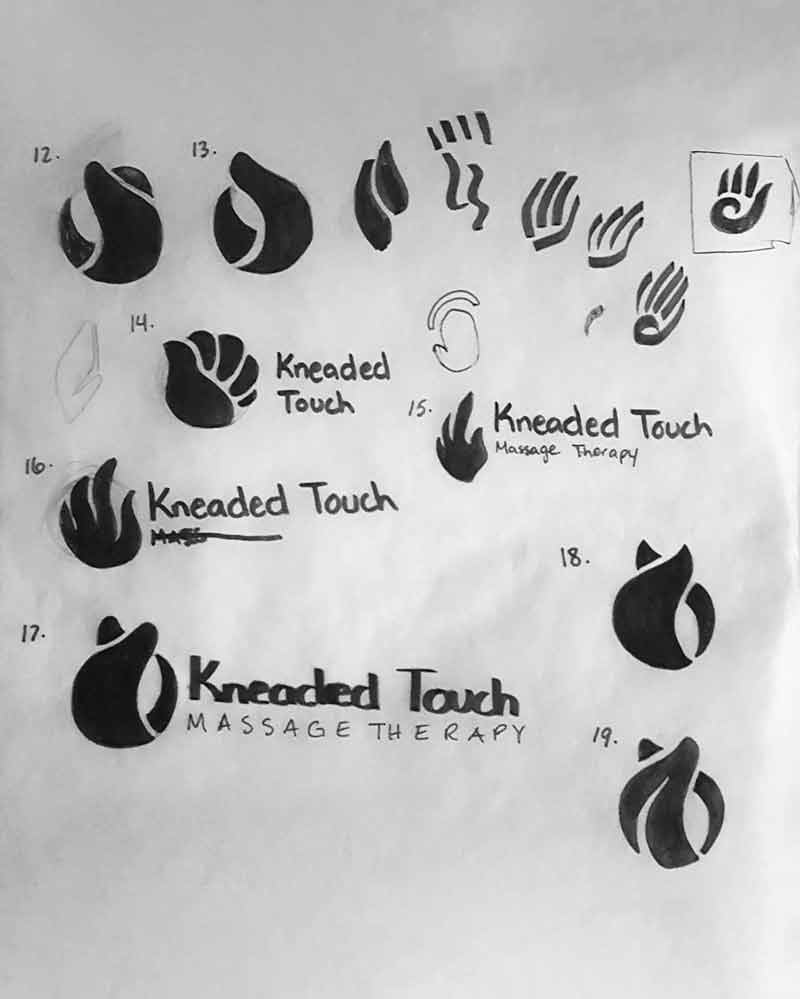 12.
13.
14.
Kneaded
Touch
15.
Kneaded Touch
Massage Therapy
16.
Kneaded Touch
18.
17.
Kneaded Touch
MASSAGE THERAPY
19.